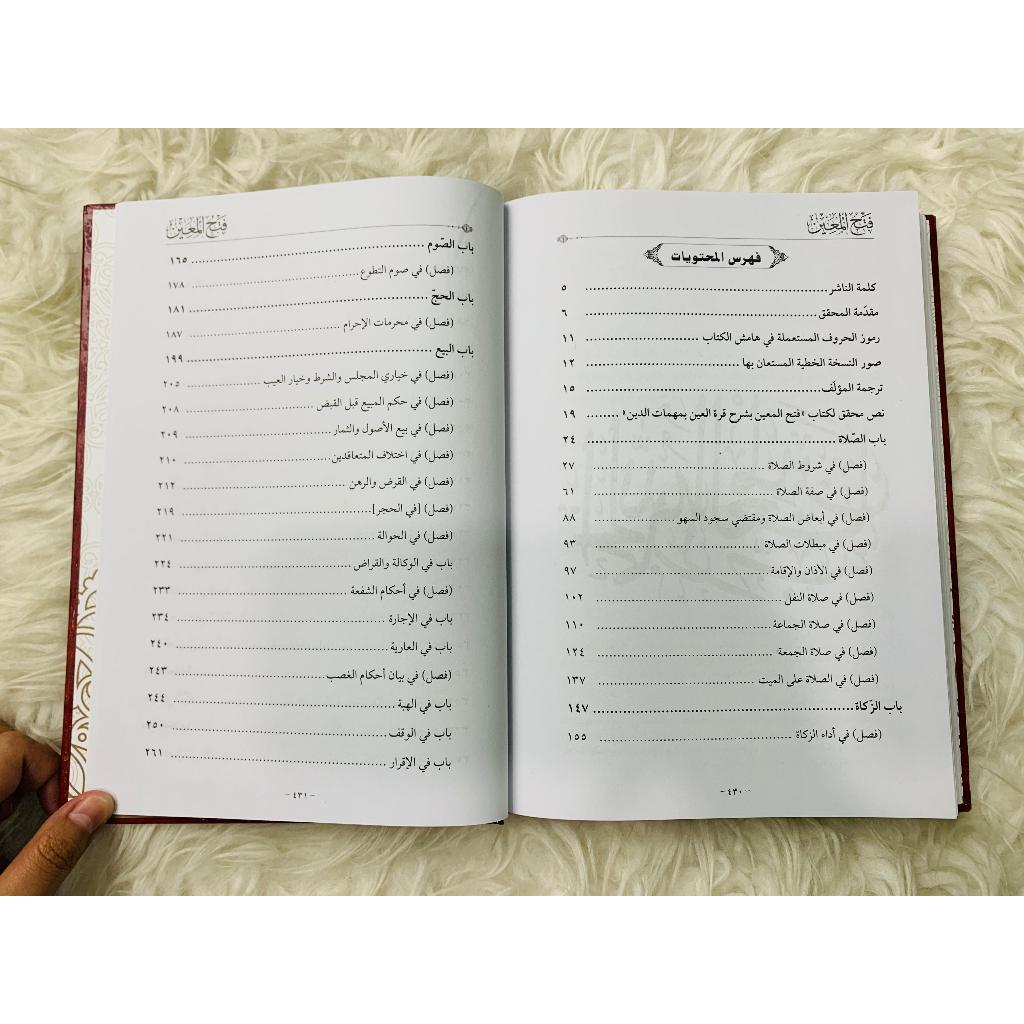 فتح المعين
فهرس المحتويات
كلمة الناشر ........ ٥
مقدّمة المحقق ........ ٦
رموز الحروف المستعملة في هامش الكتاب ........ ١١
صور النسخة الخطية المستعان بها ........ ١٢
ترجمة المؤلّف ........ ١٥
نص محقق لكتاب «فتح المعين بشرح قرة العين بمهمات الدين» ........ ١٩
باب الصّلاة ........ ٢٤
(فصل) في شروط الصلاة ........ ٢٧
(فصل) في صفة الصلاة ........ ٦١
(فصل) في أبعاض الصلاة ومقتضي سجود السهو ........ ٨٨
(فصل) في مبطلات الصلاة ........ ٩٣
(فصل) في الأذان والإقامة ........ ٩٧
(فصل) في صلاة النفل ........ ١٠٢
(فصل) في صلاة الجماعة ........ ١١٠
(فصل) في صلاة الجمعة ........ ١٢٤
(فصل) في الصلاة على الميت ........ ١٣٧
باب الزّكاة ........ ١٤٧
(فصل) في أداء الزكاة ........ ١٥٥
- ٤٣٠ -
فتح المعين
باب الصّوم ........ ١٦٥
(فصل) في صوم التطوع ........ ١٧٨
باب الحجّ ........ ١٨١
(فصل) في محرمات الإحرام ........ ١٨٧
باب البيع ........ ١٩٩
(فصل) في خياري المجلس والشرط وخيار العيب ........ ٢٠٥
(فصل) في حكم المبيع قبل القبض ........ ٢٠٨
(فصل) في بيع الأصول والثمار ........ ٢٠٩
(فصل) في اختلاف المتعاقدين ........ ٢١٠
(فصل) في القرض والرهن ........ ٢١٢
(فصل) [في الحجر] ........ ٢١٩
(فصل) في الحوالة ........ ٢٢١
باب في الوكالة والقراض ........ ٢٢٤
(فصل) في أحكام الشفعة ........ ٢٣٣
باب في الإجارة ........ ٢٣٤
باب في العارية ........ ٢٤٠
(فصل) في بيان أحكام الغصب ........ ٢٤٣
باب في الهبة ........ ٢٤٤
باب في الوقف ........ ٢٥٠
باب في الإقرار ........ ٢٦١
- ٤٣١ -